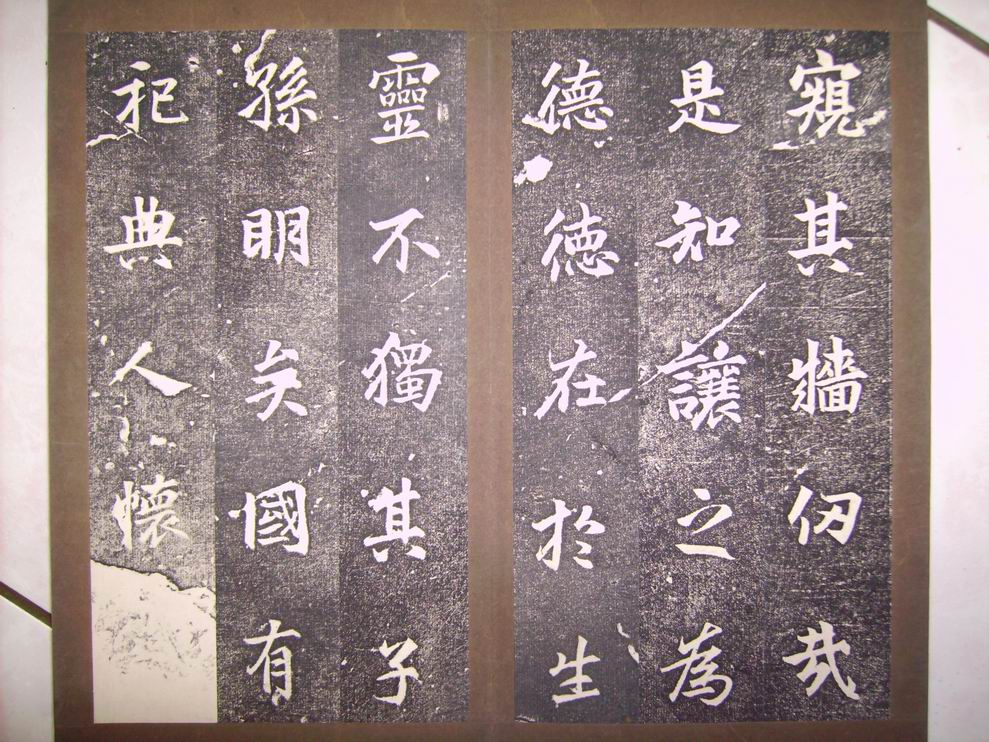 窺其牆仞哉
是知讓之為
德德在於生
靈不獨其子
孫明矣國有
祀典人懷